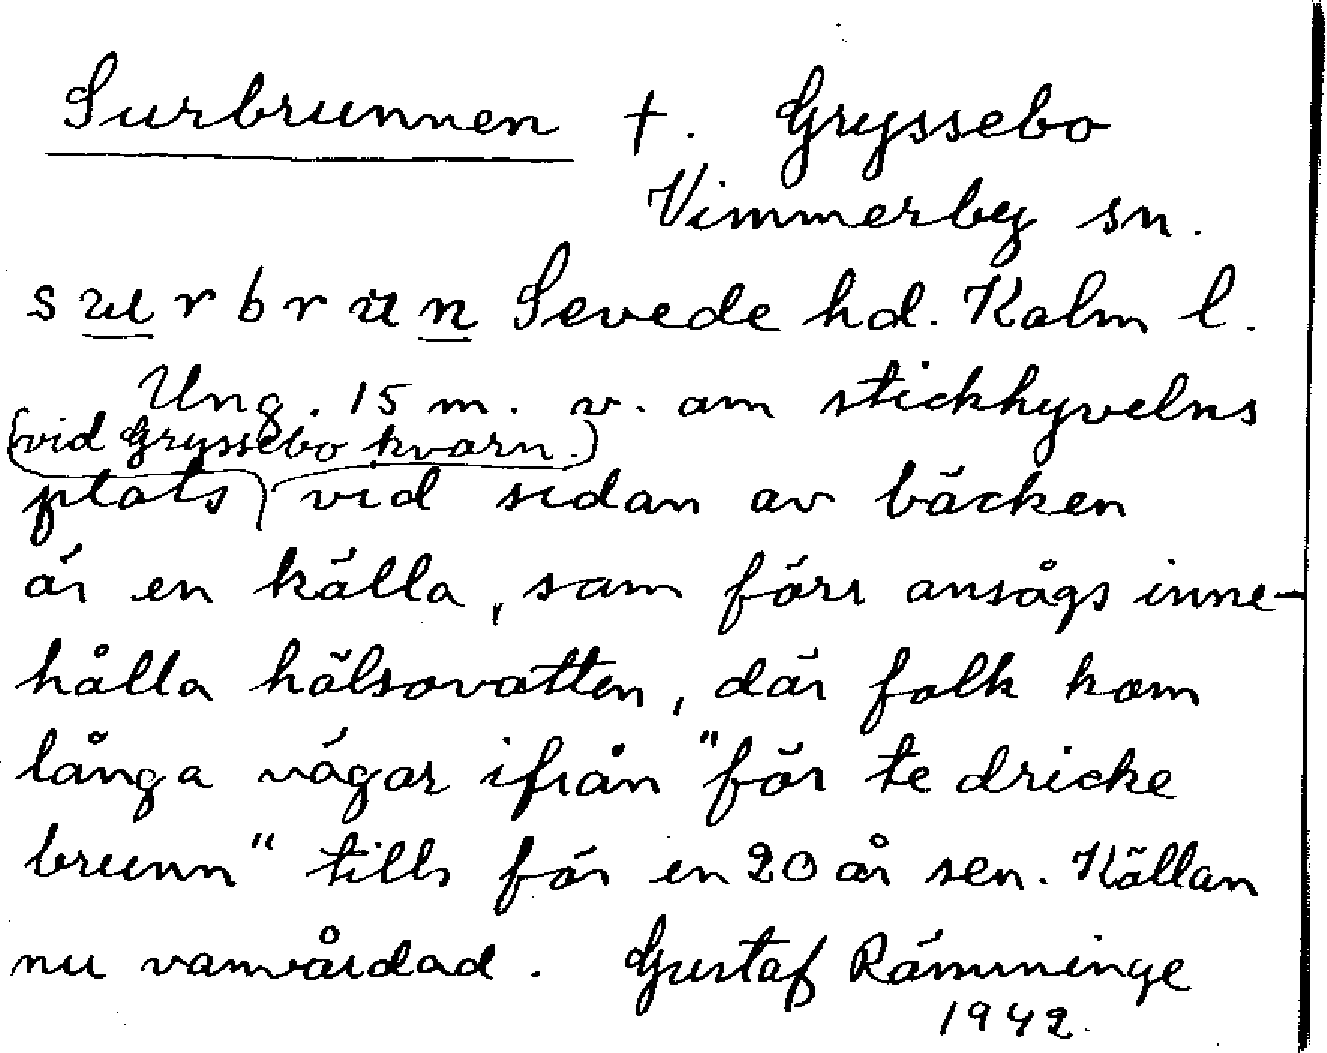 Surbrunnen †. Gryssebo
Vimmerby sn.
surbrun Sevede hd. Kalm l.
Ung. 15 m. v. om stickhyvelns
(vid Gryssebo kvarn.)
plats vid sidan av bäcken
är en källa, som förr ansågs inne-
hålla hälsovatten, där folk kom
långa vägar ifrån "för te dricke
brunn" tills för en 20 år sen. Källan
nu vanvårdad. Gustaf Rämminge
1942.